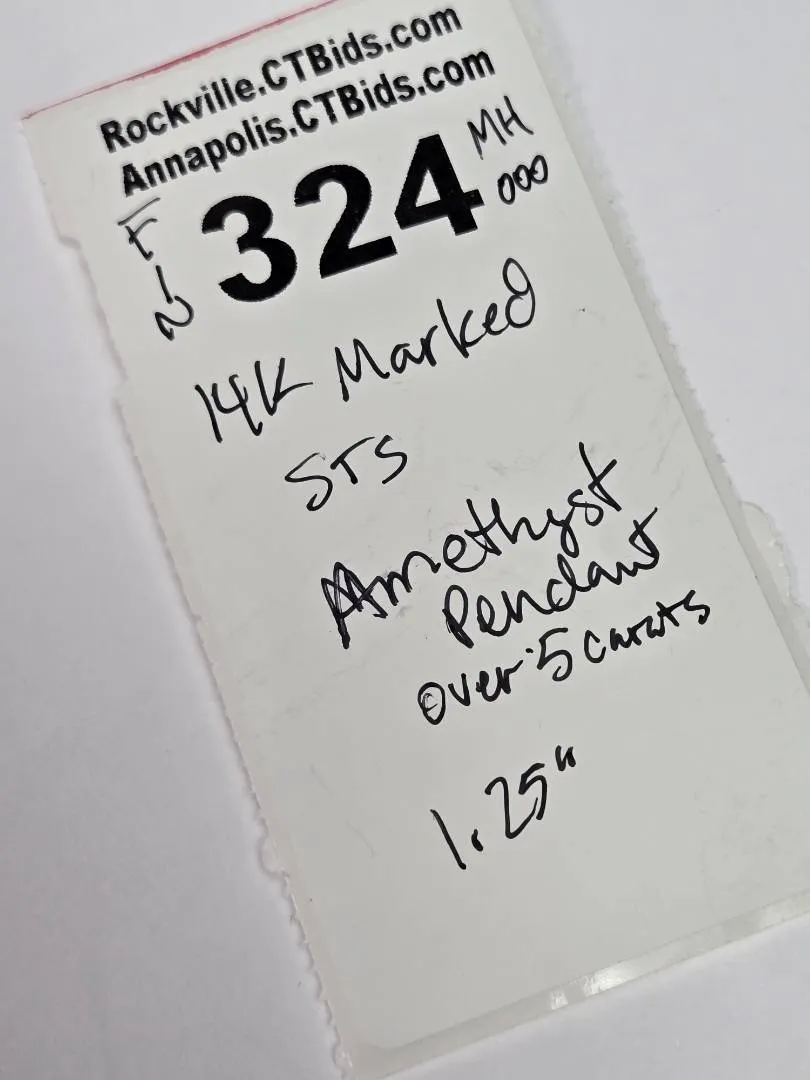 Rockville.CTBids.com
Annapolis.CTBids.com
324
MH
000
14K Marked
STS
Amethyst
Pendant
over 5 carats
1.25"